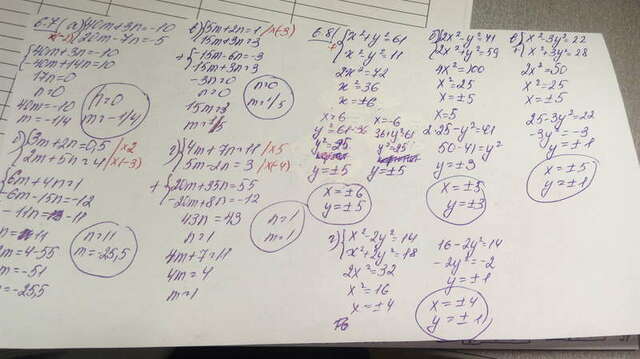 6.7 (а) {40m+3n=-10
20m-7n=5
{40m+3n=-10
-40m+14n=10
17n=0
n=0
40m=-10
m=-1/4
n=0
m=-1/4
б) {3m+2n=0,5 /x2
2m+5n=4 /x(-3)
{6m+4n=1
-6m-15n=-12
-11n=-11
n=11
2m=4-55
m=-51
m=-25,5
n=11
m=-25,5
в) {5m+2n=1 /x(-3)
15m+3n=3
+ {-15m-6n=-3
15m+3n=3
-3n=0
n=0
15m=3
m=1/5
n=0
m=1/5
г) {4m+7n=11 /x5
5m-2n=3 /x(-4)
+ {20m+35n=55
-20m+8n=-12
43n=43
n=1
4m+7=11
4m=4
m=1
n=1
m=1
6.8 {x²+y²=61
x²-y²=11
2x²=72
x²=36
x=±6
x=6
y²=61-36
y²=25
y=±5
x=-6
36+y²=61
y²=25
y=±5
x=±6
y=±5
б) {2x²-y²=41
2x²+y²=59
4x²=100
x²=25
x=±5
x=5
2·25-y²=41
50-41=y²
y=±3
x=±5
y=±3
в) {x²-3y²=22
x²+3y²=28
2x²=50
x²=25
x=±5
25-3y²=22
-3y²=-3
y=±1
x=±5
y=±1
г) {x²-2y²=14
x²+2y²=18
2x²=32
x²=16
x=±4
16-2y²=14
-2y²=-2
y=±1
x=±4
y=±1